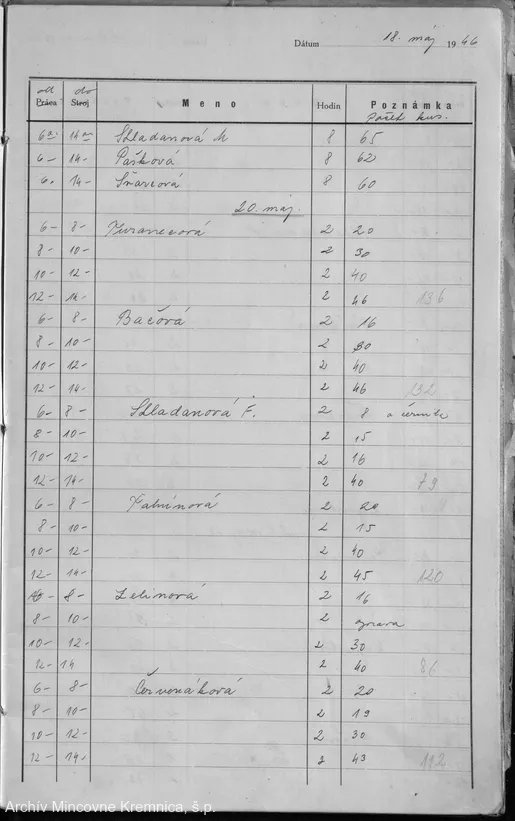 Dátum 18. máj 1946
od do
Práca Stroj Meno Hodin Poznámka
Počet kus.
6 14 Skladanová M 8 65
6- 14- Pašková 8 62
6- 14- 8 60
20. máj.
6- 8- 2 20
8- 10- 2 30
10- 12- 2 40
12- 14- 2 46 136
6- 8- Bačová 2 16
8- 10- 2 30
10- 12- 2 40
12- 14- 2 46 132
6- 8- Skladanová F. 2 8
8- 10- 2 15
10- 12- 2 16
12- 14- 2 40 79
6- 8- 2 20
8- 10- 2 15
10- 12- 2 40
12- 14- 2 45 120
6- 8- Zelinová 2 16
8- 10- 2 oprava
10- 12- 2 30
12- 14 2 40 86
6- 8- Červenáková 2 20
8- 10- 2 19
10- 12- 2 30
12- 14- 2 43 112
Archív Mincovne Kremnica, š.p.